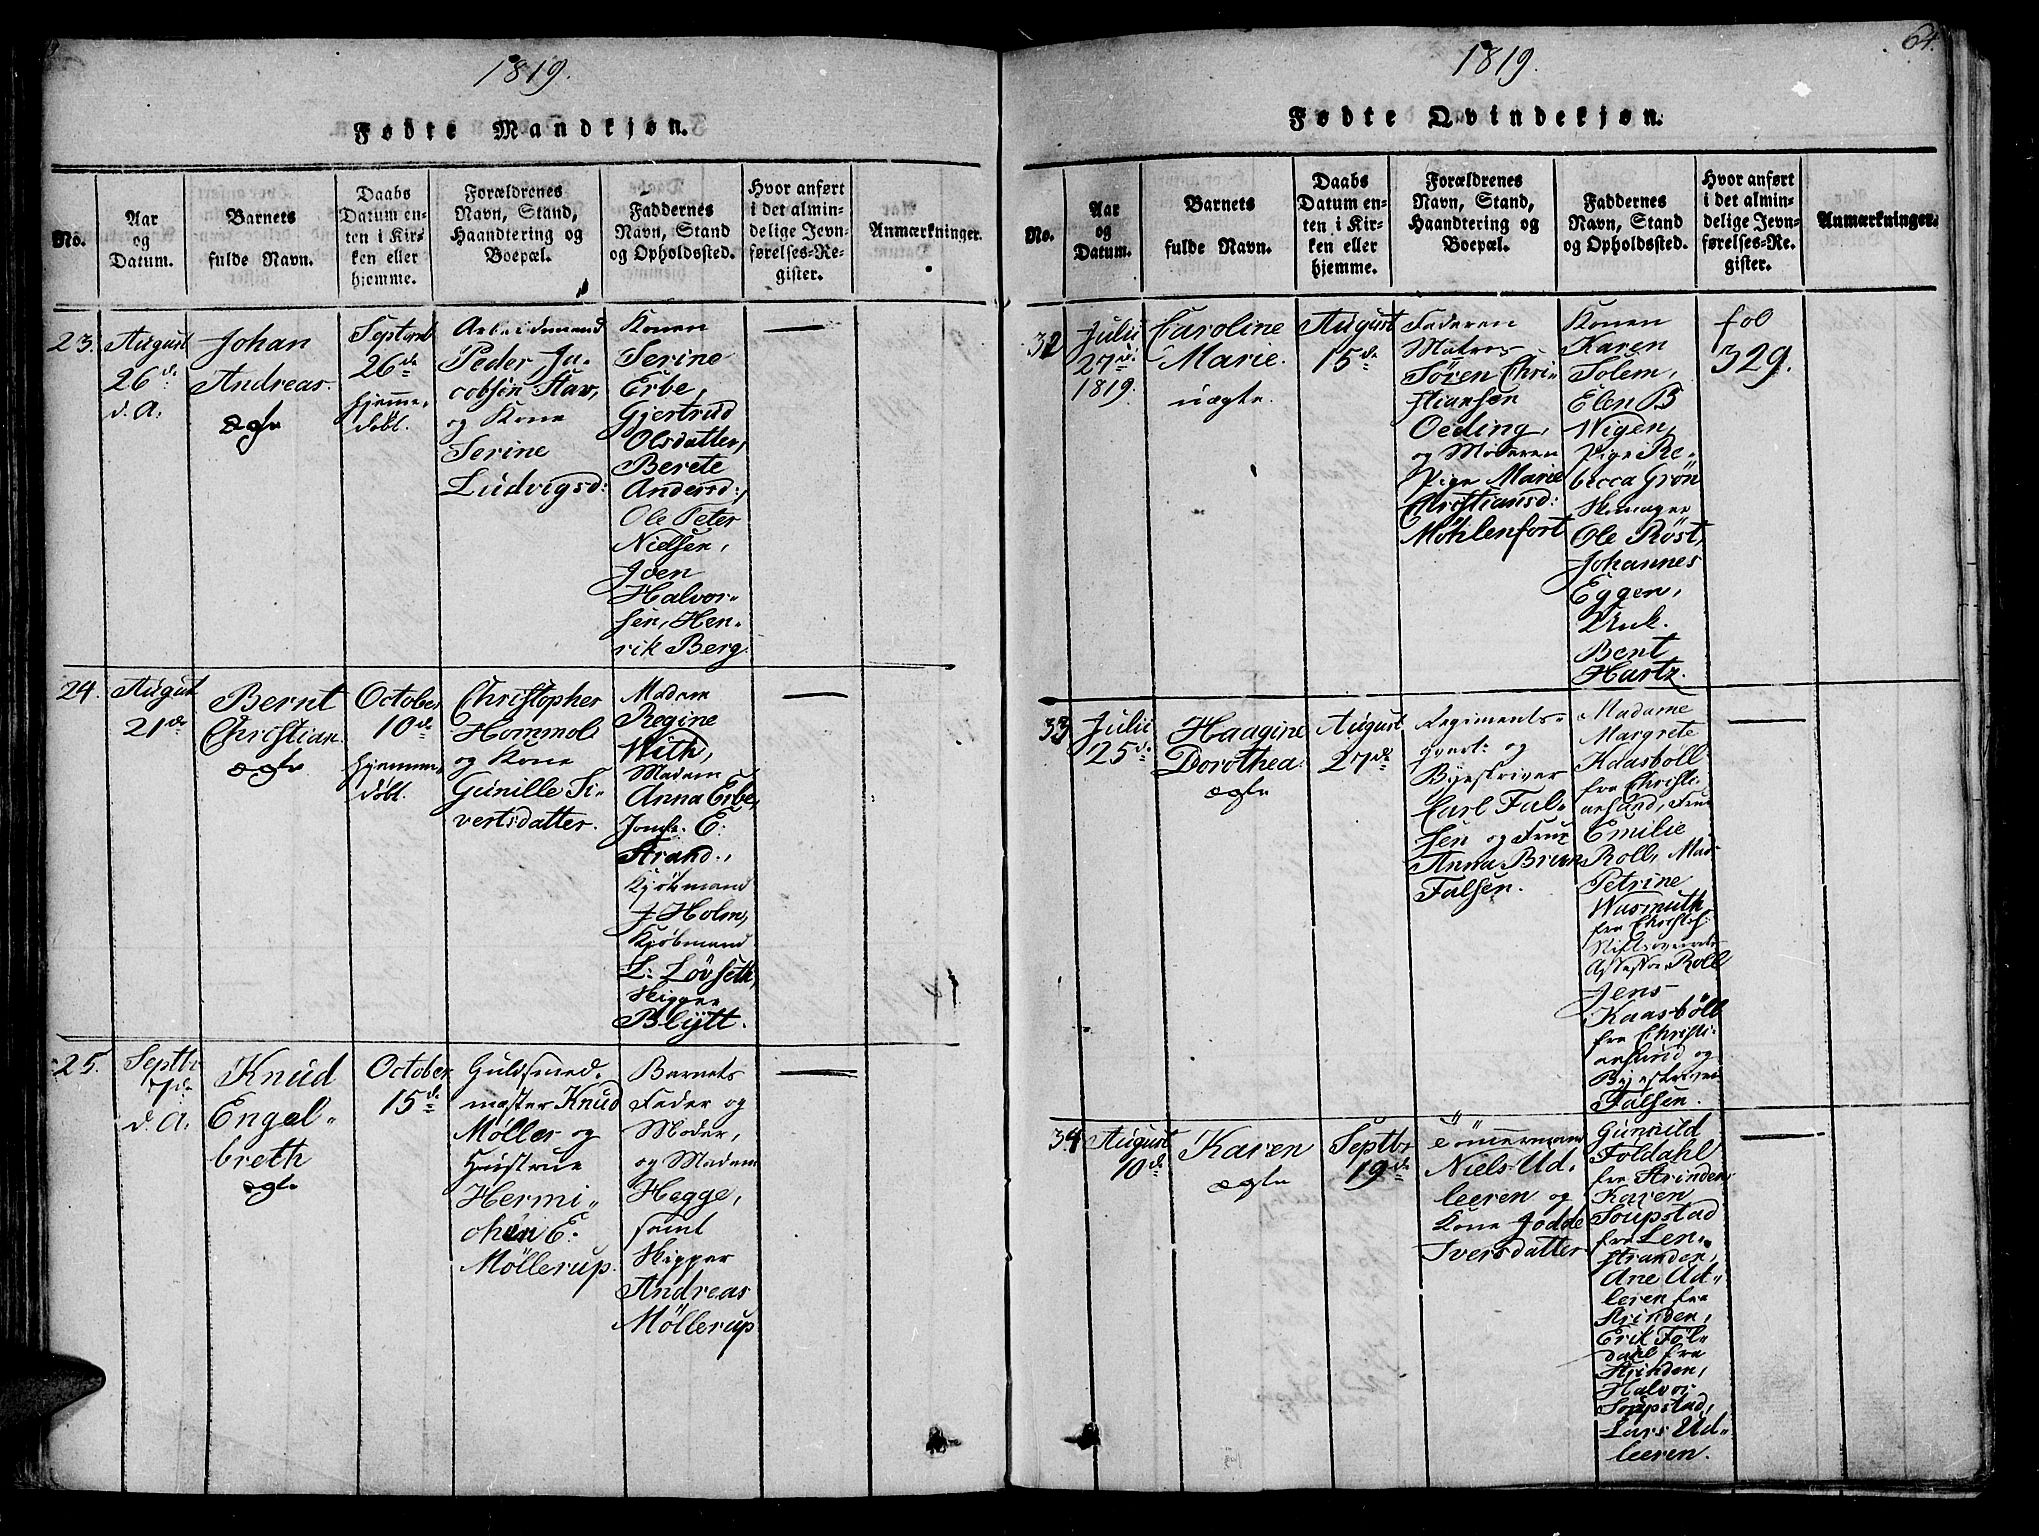 1819.
Fødte Mandkjøn.
No.
Aar
og
Datum.
Barnets
fulde Navn.
Daabs
Datum en-
ten i Kir-
ken eller
hjemme.
Forældrenes
Navn, Stand,
Haandtering og
Boepæl.
Faddernes
Navn, Stand
og Opholdssted.
Hvor anført
i det almin-
delige Jevn-
førelses-Re-
gister.
Anmærkninger.
23.
August
26de
d. A.
Johan
Andreas.
ægte
Septemb
26de
hjemme-
døbt.
Arbeidsmand
Peder Ja-
cobsen Stav,
og Kone
Serine
Ludvigsd:
Konen
Serine
Erbe,
Gjertrud
Olsdatter,
Berete
Andersd:,
Ole Peter
Nielsen,
Joen
Halvor-
sen, Hen-
rik Berg.
24.
August
21de
Bernt
Christian.
ægte
October
10de
hjemme-
døbt.
Christopher
Hommol
og Kone
Gunille Si-
vertsdatter.
Madam
Regine
With,
Madam
Anna Erbe,
Jomfr. E:
Strand.,
Kjøbmand
J. Holm,
Kjøbmand
L: Løvseth,
Skipper
Blytt.
25.
Septbr
7de
d. A.
Knud
Engel-
breth
ægte
October
15de
Guldsmed-
mester Knud
Møller og
Hustrue
Hermi-
chen E:
Møllerup.
Barnets
Fader og
Moder,
og Madam
Hegge,
samt
Skipper
Andreas
Møllerup
64.
1819.
Fødte Qvindekjøn.
No.
Aar
og
Datum.
Barnets
fulde Navn.
Daabs
Datum en-
ten i Kir-
ken eller
hjemme.
Forældrenes
Navn, Stand,
Haandtering og
Boepæl.
Faddernes
Navn, Stand
og Opholdssted.
Hvor anført
i det almin-
delige Jevn-
førelses-Re-
gister.
Anmærkninger.
32
Julii
27de
1819.
Caroline
Marie.
uægte.
August
15de
Faderen
Matros
Søren Chri-
stiansen
Oeding,
og Moderen
Pige Marie
Christiansd:
Möhlenfort
Konen
Karen
Solem,
Elen B
Wigen,
Pige Re-
becca Grøn
Skomager
Ole Røst,
Johannes
Eggen,
Unk.
Bent
Hartz.
fol
329.
33
Julii
25de
Haagine
Dorothea
ægte
August
27de
Regiments-
qvart: og
Byeskriver
Carl Fal-
sen og Frue
Anna Brun
Falsen.
Madame
Margrete
Kaasbøll
fra Christi-
ansund, Frue
Emilie
Roll, Mad.
Petrine
Wasmuth
fra Christs:
Stiftsoverrets
Assessor Roll
Jens
Kaasbøll
fra Christi-
ansund og
Byeskriver
Falsen.
34
August
10de
Karen
ægte
Septbr
19de
Tömmermand
Niels Ud-
leeren og
Kone Jodde
Iversdatter
Gunnild
Foldahl
fra Strinden
Karen
Soupstad
fra Len-
stranden,
Ane Ud-
leeren fra
Strinden,
Erik Føl-
dahl fra
Strinden,
Halvor
Soupstad,
Lars Ud-
leeren.